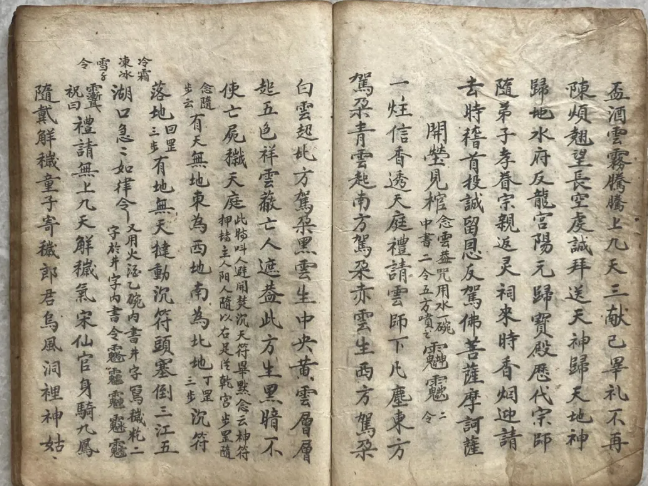 盃酒雲霧騰騰上九天三献己畢礼不再
陳煩翹望長空虔誠拜送天神歸天地神
歸地水府反龍宮陽元歸寶殿歴代宗師
隨弟子孝眷宗親返灵祠來時香烟迎請
去時稽首投誠留恩反駕佛菩薩摩訶薩
開瑩見棺念雲益咒用水一碗中書二令五方噴之 二令
一炷信香透天庭禮請雲師下凡塵東方
駕朶青雲起南方駕朶赤雲生西方駕朶
白雲起北方駕朶黑雲生中央黄雲層層
起五色祥雲蔽亡人遮益此方生黑暗不
使亡屍穢天庭此時叫人避開焚沉天符畢黙念云神符押棺主陽人隨以右足從乾宮步罡隨
念隨步云有天無地東為西地南為北地丁罡三步沉符
落地回罡三步有地無天撻動沉符頭塞倒三江五
冷霜凍冰雪子令
湖口急急如律令又用火泾乙碗内書井字寫穢乾二字於井字内書令
祝曰禮請無上九天解穢氣宋仙官身騎九鳳
隨戴解穢童子寄穢郎君烏風洞裡神姑